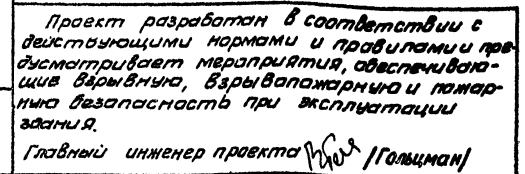 Проект разработан в соответствии с
действующими нормами и правилами и пре-
дусматривает мероприятия, обеспечиваю-
щие взрывную, взрывопожарную и пожар-
ную безопасность при эксплуатации
здания.
Главный инженер проекта /Гольцман/